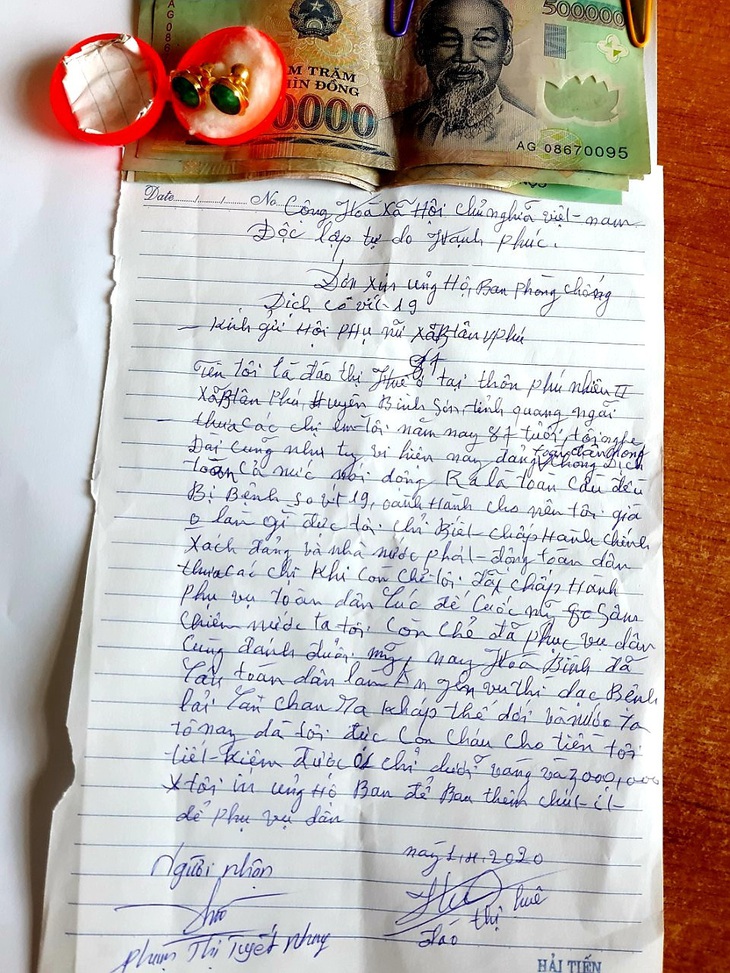 500000
AG 086
ĂM TRĂM
HÌN ĐỒNG
0000
AG 08670095
Date / / No
Cộng Hoà Xã Hội chủ nghĩa việt-nam
Độc lập tự do Hạnh phúc.
Đơn xin ủng Hộ, Ban phòng chống
Dịch cô vit-19
- Kính gửi Hội phụ nữ xã
Tên tôi là đào thị Huê ở tại thôn phú nhiêu II
Xã Huyện Bình Sơn tỉnh quang ngãi
- thưa các chị em tôi năm nay 81 tuổi, tôi nghe
Đài cũng như ty vi hiện nay đảng
toàn cả nước nói
Bị Bệnh so vit 19, oành Hành cho nên tôi già
o làm gì được tôi chỉ Biết chấp Hành chính
xách đảng và nhà nước phát-động toàn dân
thưa các chị khi còn chẻ tôi đã chấp Hành
phụ vụ toàn dân lúc đế cuốc mỹ
chiến nước ta tôi còn chẻ đã phục vụ dân
cùng đánh đuổi mỹ, nay Hoà Bình đã
toàn dân làm Ăn
lai Lan chan ra khắp thế dới và nước ta
tô nay đã tôi được con cháu cho tiền tôi
tiết-kiệm được 01 chỉ dưởi vàng và 2000,000
tôi in ủng Hộ Ban để Ban thêm chút-ít-
để phụ vụ dân
Người nhận
Phạm Thị Tuyết Nhung
2020
đào thị huê
HẢI TIẾN